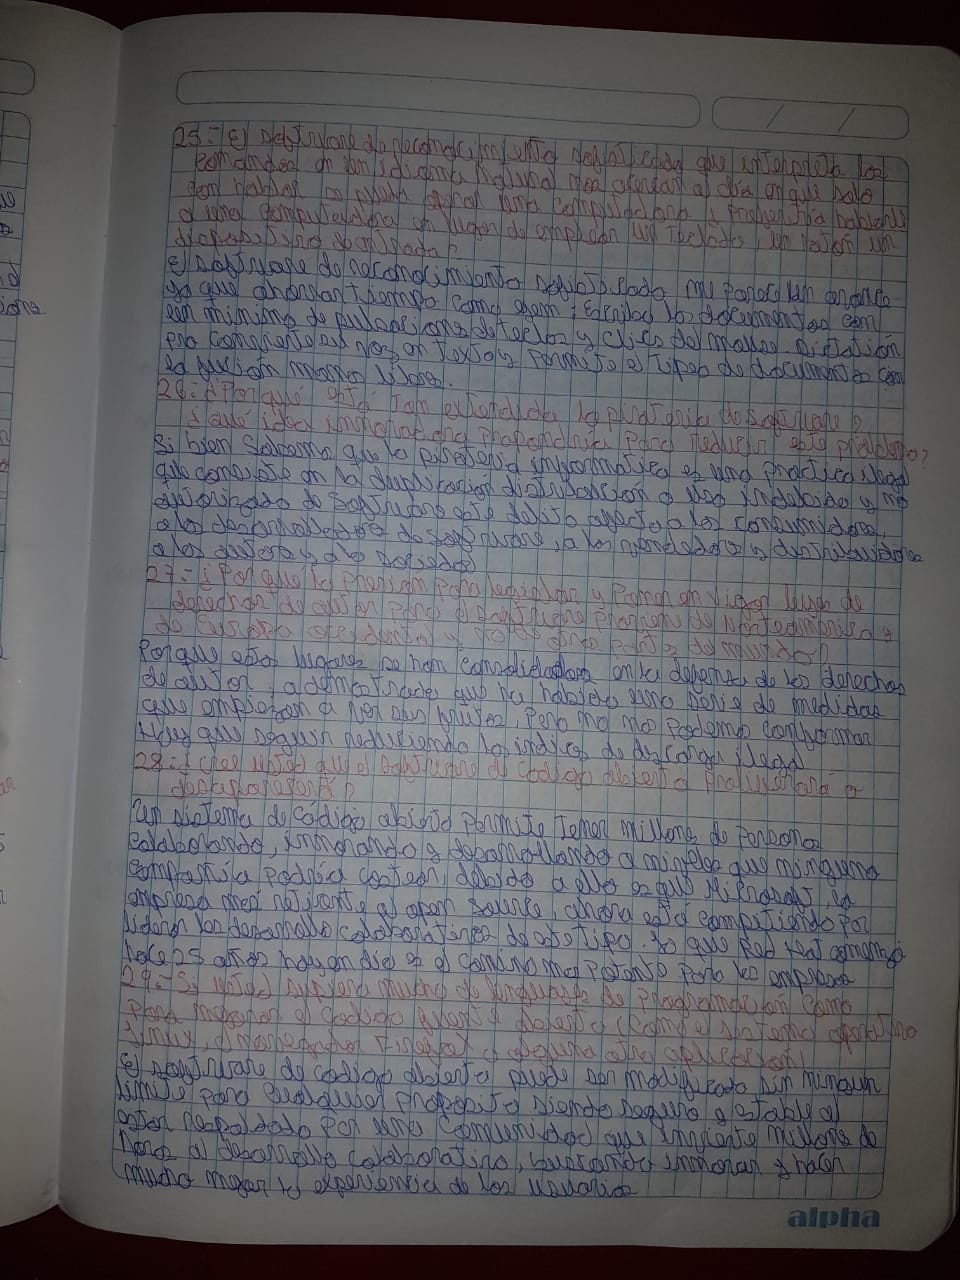 25.- El software de reconocimiento sofisticado que interpreta los
comandos en un idioma natural nos acercan al día en que solo
con hablar se pueda operar una computadora ¿Preferiría hablarle
a una computadora en lugar de emplear un teclado, un ratón un
dispositivo
El software de reconocimiento sofisticado me parece un avance
ya que ahorran tiempo como son; Escriba los documentos con
un mínimo de pulsaciones de teclas y clics del mouse. Dictación
pro convierte su voz en texto y permite el tipeo de documentos con
la gestión manos libres.
26.- ¿Por qué está tan extendida la piratería de software?
¿qué idea innovadora propondría para reducir este problema?
Si bien sabemos que la piratería informática es una practica ilegal
que consiste en la duplicacion distribución o uso indebido y no
autorizado de software este delito afecta a los consumidores,
a los desarrolladores de software, a los vendedores y distribuidores
a los autores y a la sociedad
27.- ¿Por qué la presion para legislar y poner en vigor leyes de
derechos de autor para el software proviene de Norteamérica y
de Europa occidental y no de otras partes del mundo?
Porque estos lugares se han consolidados en la defensa de los derechos
de autor, a demostrado que ha habido una serie de medidas
que empiezan a ver sus frutos, pero no nos podemos conformar
Hay que seguir reduciendo los indices de descarga ilegal
28.- ¿cree usted que el software de código abierto proliferará o
desaparecerá?
Un sistema de código abierto permite tener millones de personas
colaborando, innovando y desarrollando a niveles que ninguna
compañía podría costear, debido a ello es que Microsoft, la
empresa más reticente al open source, ahora está compitiendo por
liderar los desarrollos colaborativos de este tipo. Lo que Red Hat comenzó
hace 25 años hoy en día es el camino mas potente para las empresas
29.- Si usted supiera mucho de lenguajes de programación como
para mejorar el codigo fuente abierto (como el sistema operativo
Linux, el navegador Firefox) o alguna otra aplicación
El software de codigo abierto puede ser modificado sin ningun
limite para cualquier proposito siendo seguro y estable al
estar respaldado por una comunidad que invierte millones de
horas al desarrollo colaborativo, buscando innovar y hacer
mucho mejor la experiencia de los usuarios
alpha